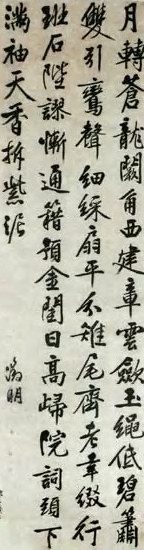 月轉蒼龍闕角西建章雲歛玉繩低碧簫
雙引鸞聲細綵扇平分雉尾齊老幸綴行
班石陛謬慚通籍預金閨日高歸院詞頭下
滿袖天香拆紫泥
瀚明